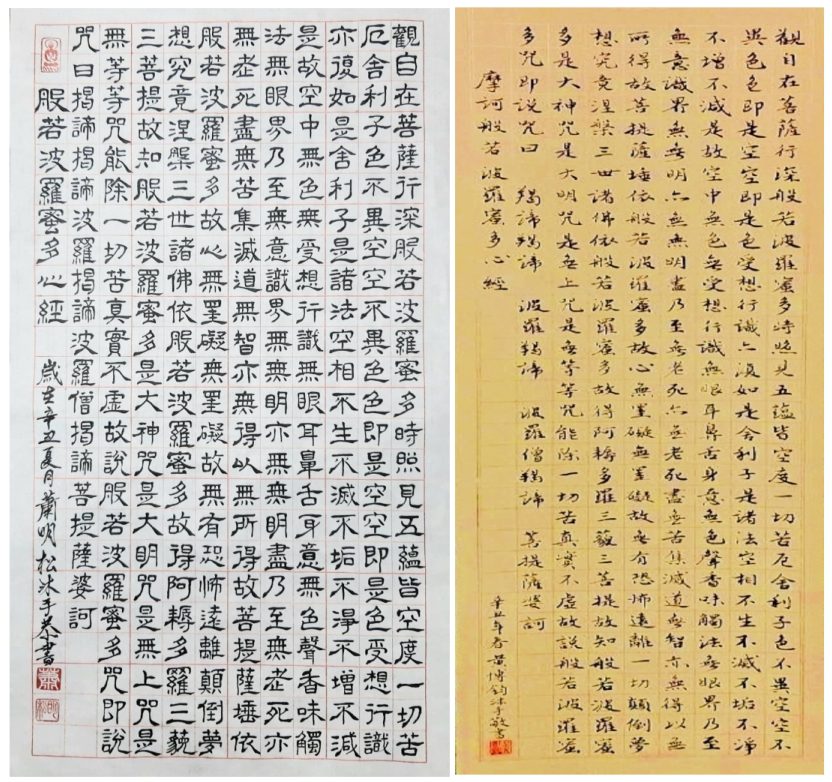 觀自在菩薩行深般若波羅蜜多時照見五蘊皆空度一切苦
厄舍利子色不異空空不異色色即是空空即是色受想行識
亦復如是舍利子是諸法空相不生不滅不垢不淨不增不減
是故空中無色無受想行識無眼耳鼻舌身意無色聲香味觸
法無眼界乃至無意識界無無明亦無無明盡乃至無老死亦
無老死盡無苦集滅道無智亦無得以無所得故菩提薩埵依
般若波羅蜜多故心無罣礙無罣礙故無有恐怖遠離顛倒夢
想究竟涅槃三世諸佛依般若波羅蜜多故得阿耨多羅三藐
三菩提故知般若波羅蜜多是大神咒是大明咒是無上咒是
無等等咒能除一切苦真實不虛故說般若波羅蜜多咒即說
咒曰揭諦揭諦波羅揭諦波羅僧揭諦菩提薩婆訶
般若波羅蜜多心經
歲在辛丑夏月蕭明松沐手恭書
觀自在菩薩行深般若波羅蜜多時照見五蘊皆空度一切苦厄舍利子色不異空空不
異色色即是空空即是色受想行識亦復如是舍利子是諸法空相不生不滅不垢不淨
不增不減是故空中無色無受想行識無眼耳鼻舌身意無色聲香味觸法無眼界乃至
無意識界無無明亦無無明盡乃至無老死亦無老死盡無苦集滅道無智亦無得以無
所得故菩提薩埵依般若波羅蜜多故心無罣礙無罣礙故無有恐怖遠離一切顛倒夢
想究竟涅槃三世諸佛依般若波羅蜜多故得阿耨多羅三藐三菩提故知般若波羅蜜
多是大神咒是大明咒是無上咒是無等等咒能除一切苦真實不虛故說般若波羅蜜
多咒即說咒曰 揭諦揭諦 波羅揭諦 波羅僧揭諦 菩提薩婆訶
摩訶般若波羅蜜多心經
辛丑年春黃博鈞沐手敬書